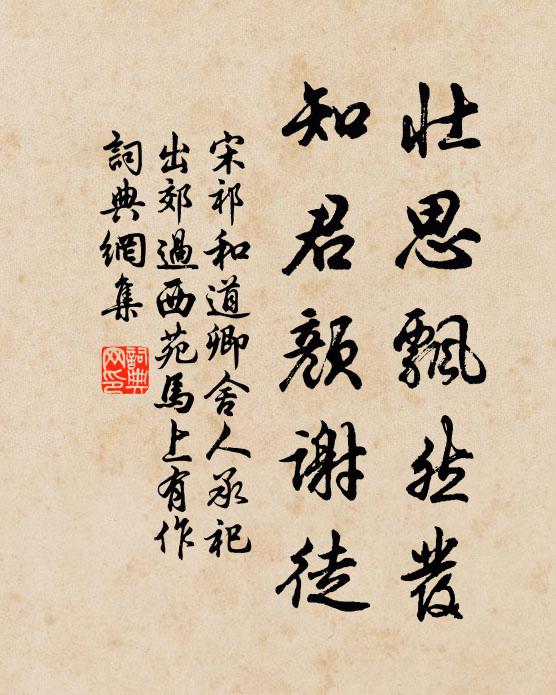 壯思飄然發
知君顏謝徒
宋祁和道卿舍人承祀
出郊過西苑馬上有作
詞典網集
詞典網印